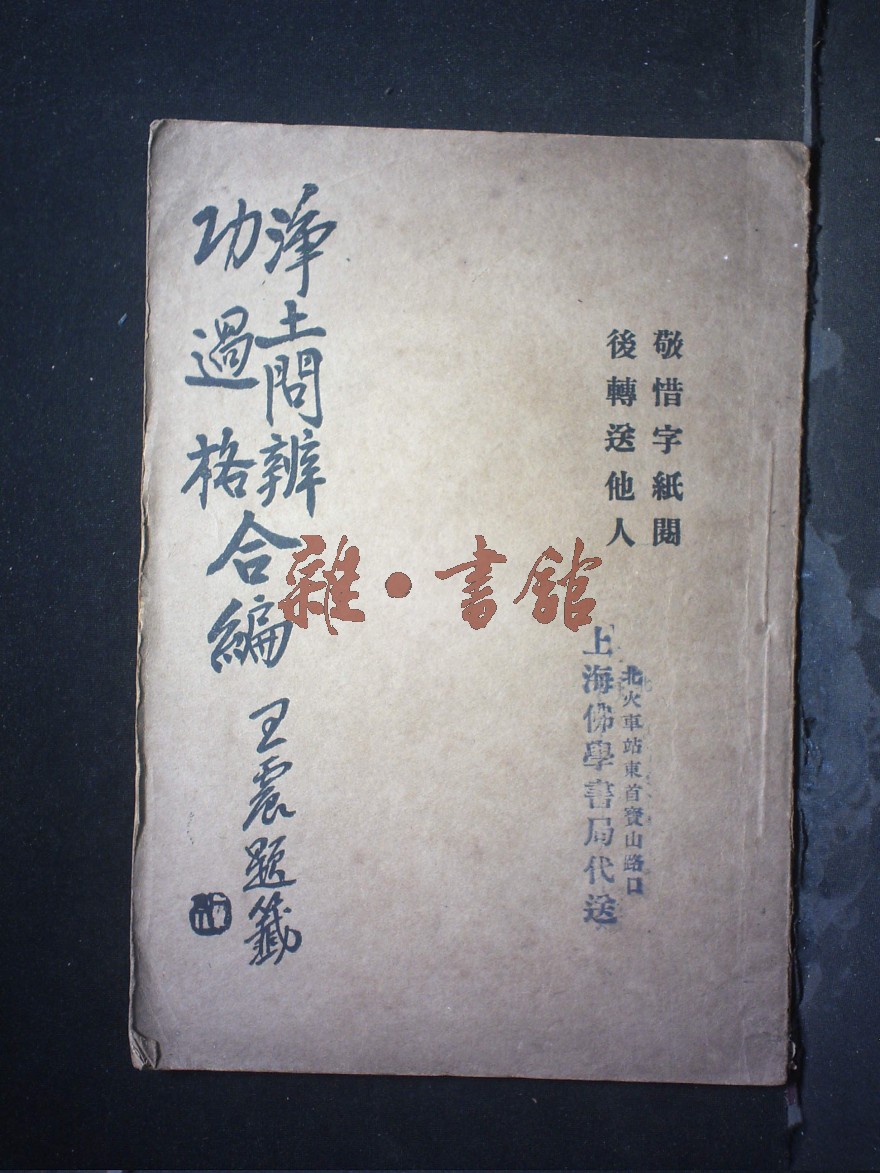 敬惜字紙閱
後轉送他人
北火車站東首寶山路口
上海佛學書局代送
淨土問辨
功過格
合編
王震題籤
雜·書館